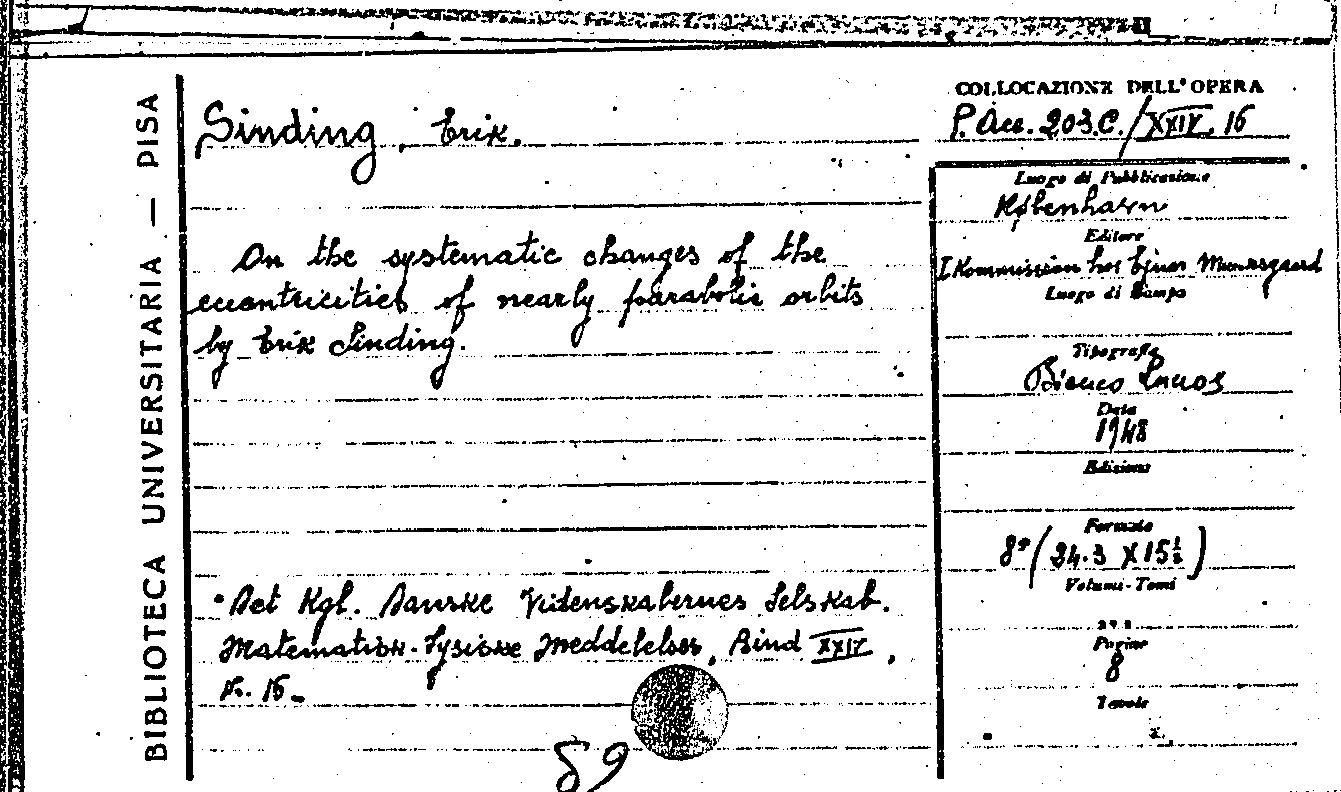 BIBLIOTECA UNIVERSITARIA — PISA
Sinding, Erik.
On the systematic changes of the
eccentricities of nearly parabolic orbits
by Erik Sinding.
Det Kgl. Danske Videnskabernes Selskab.
Matematisk-Fysiske Meddelelser, Bind XXIV,
Nr. 16.
89
COLLOCAZIONE DELL'OPERA
P. Acc. 203.C./XXIV. 16
Luogo di Pubblicazione
København
Editore
I Kommission hos Ejnar Munksgaard
Luogo di Stampa
Tipografia
Bianco Lunos
Data
1948
Edizione
Formato
8° (24.3 X 15½)
Volumi-Tomi
Pagine
8
Tavole